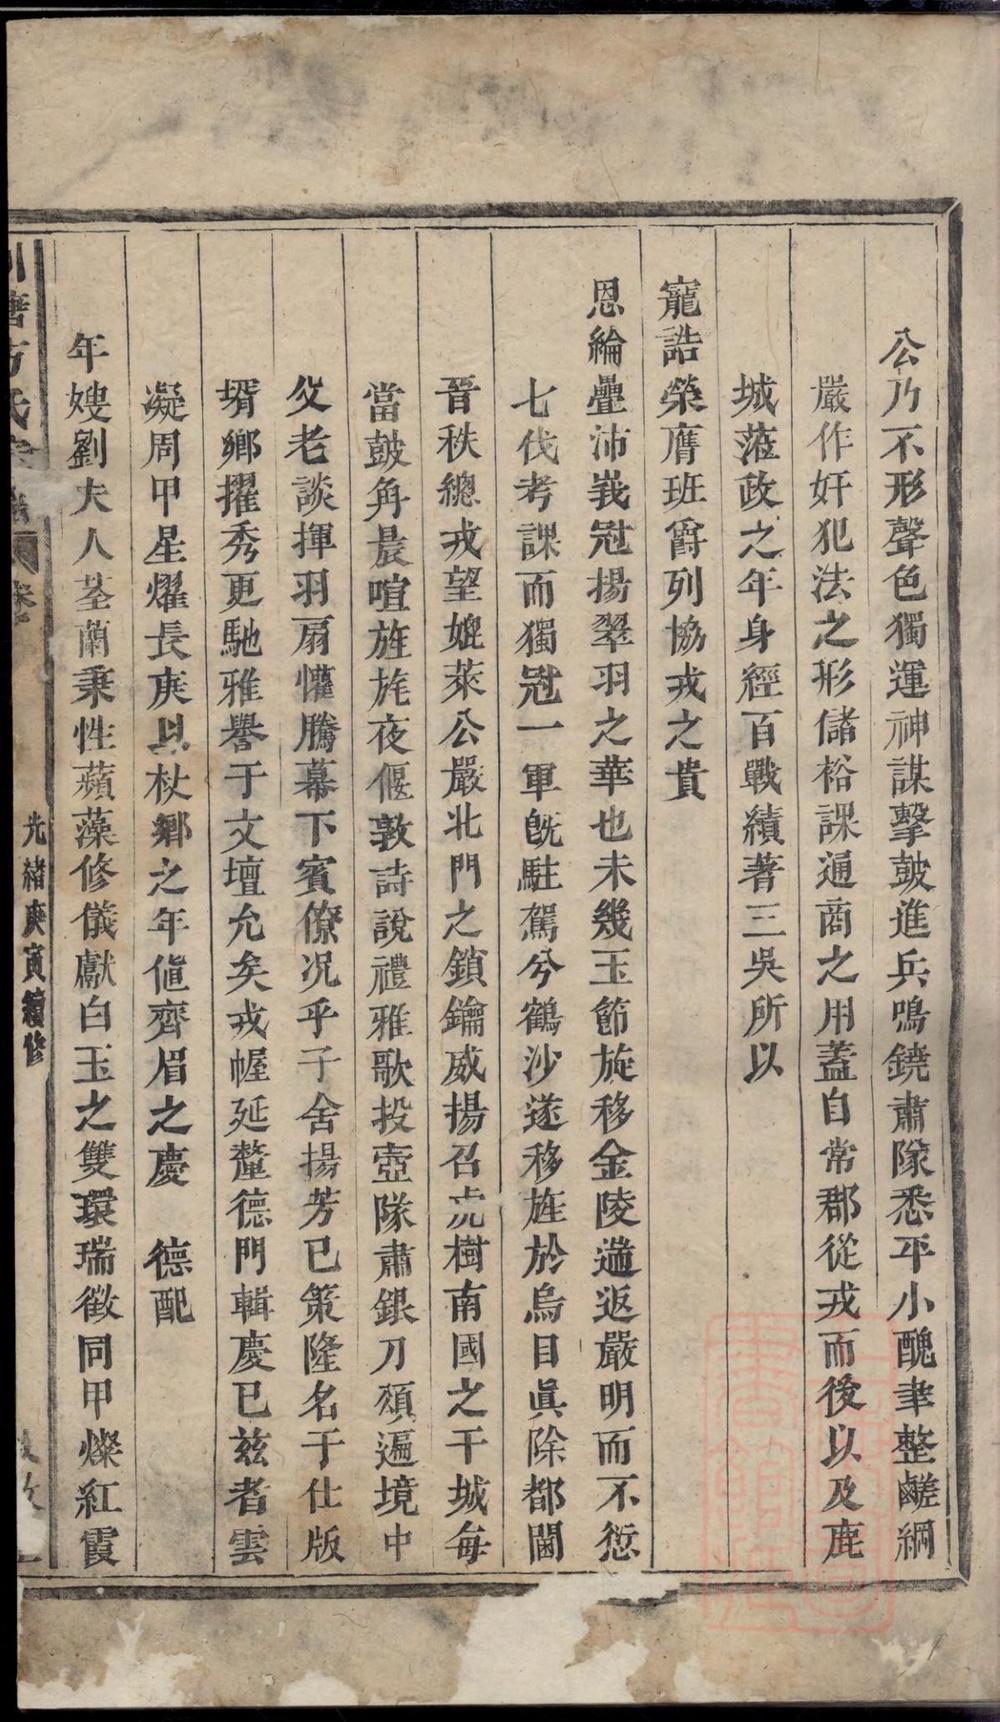 公乃不形聲色獨運神謀擊鼓進兵鳴鐃肅隊悉平小醜聿整鹺綱
嚴作奸犯法之形儲裕課通商之用蓋自常郡從戎而後以及鹿
城蒞政之年身經百戰績著三吳所以
寵誥榮膺班爵列協戎之貴
恩綸疊沛峩冠揚翠羽之華也未幾玉節旋移金陵遄返嚴明而不愆
七伐考課而獨冠一軍旣駐駕兮鶴沙遂移旌於烏目眞除都閫
晉秩總戎望媲萊公嚴北門之鎖鑰威揚召虎樹南國之干城每
當鼓角晨喧旌旄夜偃敦詩說禮雅歌投壺隊肅銀刀頌遍境中
父老談揮羽扇懽騰幕下賓僚况乎子舍揚芳已策隆名于仕版
壻鄉擢秀更馳雅譽于文壇允矣戎幄延釐德門輯慶已茲者雲
凝周甲星燿長庚以杖鄉之年值齊眉之慶　德配
年嫂劉夫人荃蘭秉性蘋藻修儀獻白玉之雙環瑞徵同甲燦紅霞
塘方氏宗譜
光緒庚寅續修